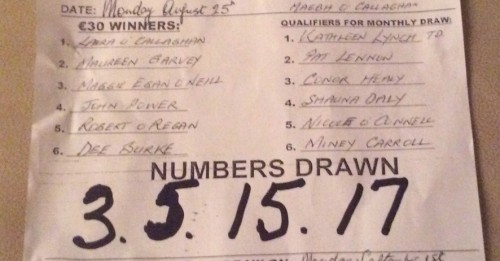 DATE: Monday August 25th MAEBH O CALLAGHAN
€30 WINNERS: QUALIFIERS FOR MONTHLY DRAW:
1. LAURA O CALLAGHAN 1. KATHLEEN LYNCH TD
2. MAUREEN GARVEY 2. PAT LENNON
3. MAGGIE EGAN O NEILL 3. CONOR HEALY
4. JOHN POWER 4. SHAUNA DALY
5. ROBERT O REGAN 5. NICOLE O CONNELL
6. DEE BURKE 6. MINEY CARROLL
NUMBERS DRAWN
3. 5. 15. 17
Monday September 1st